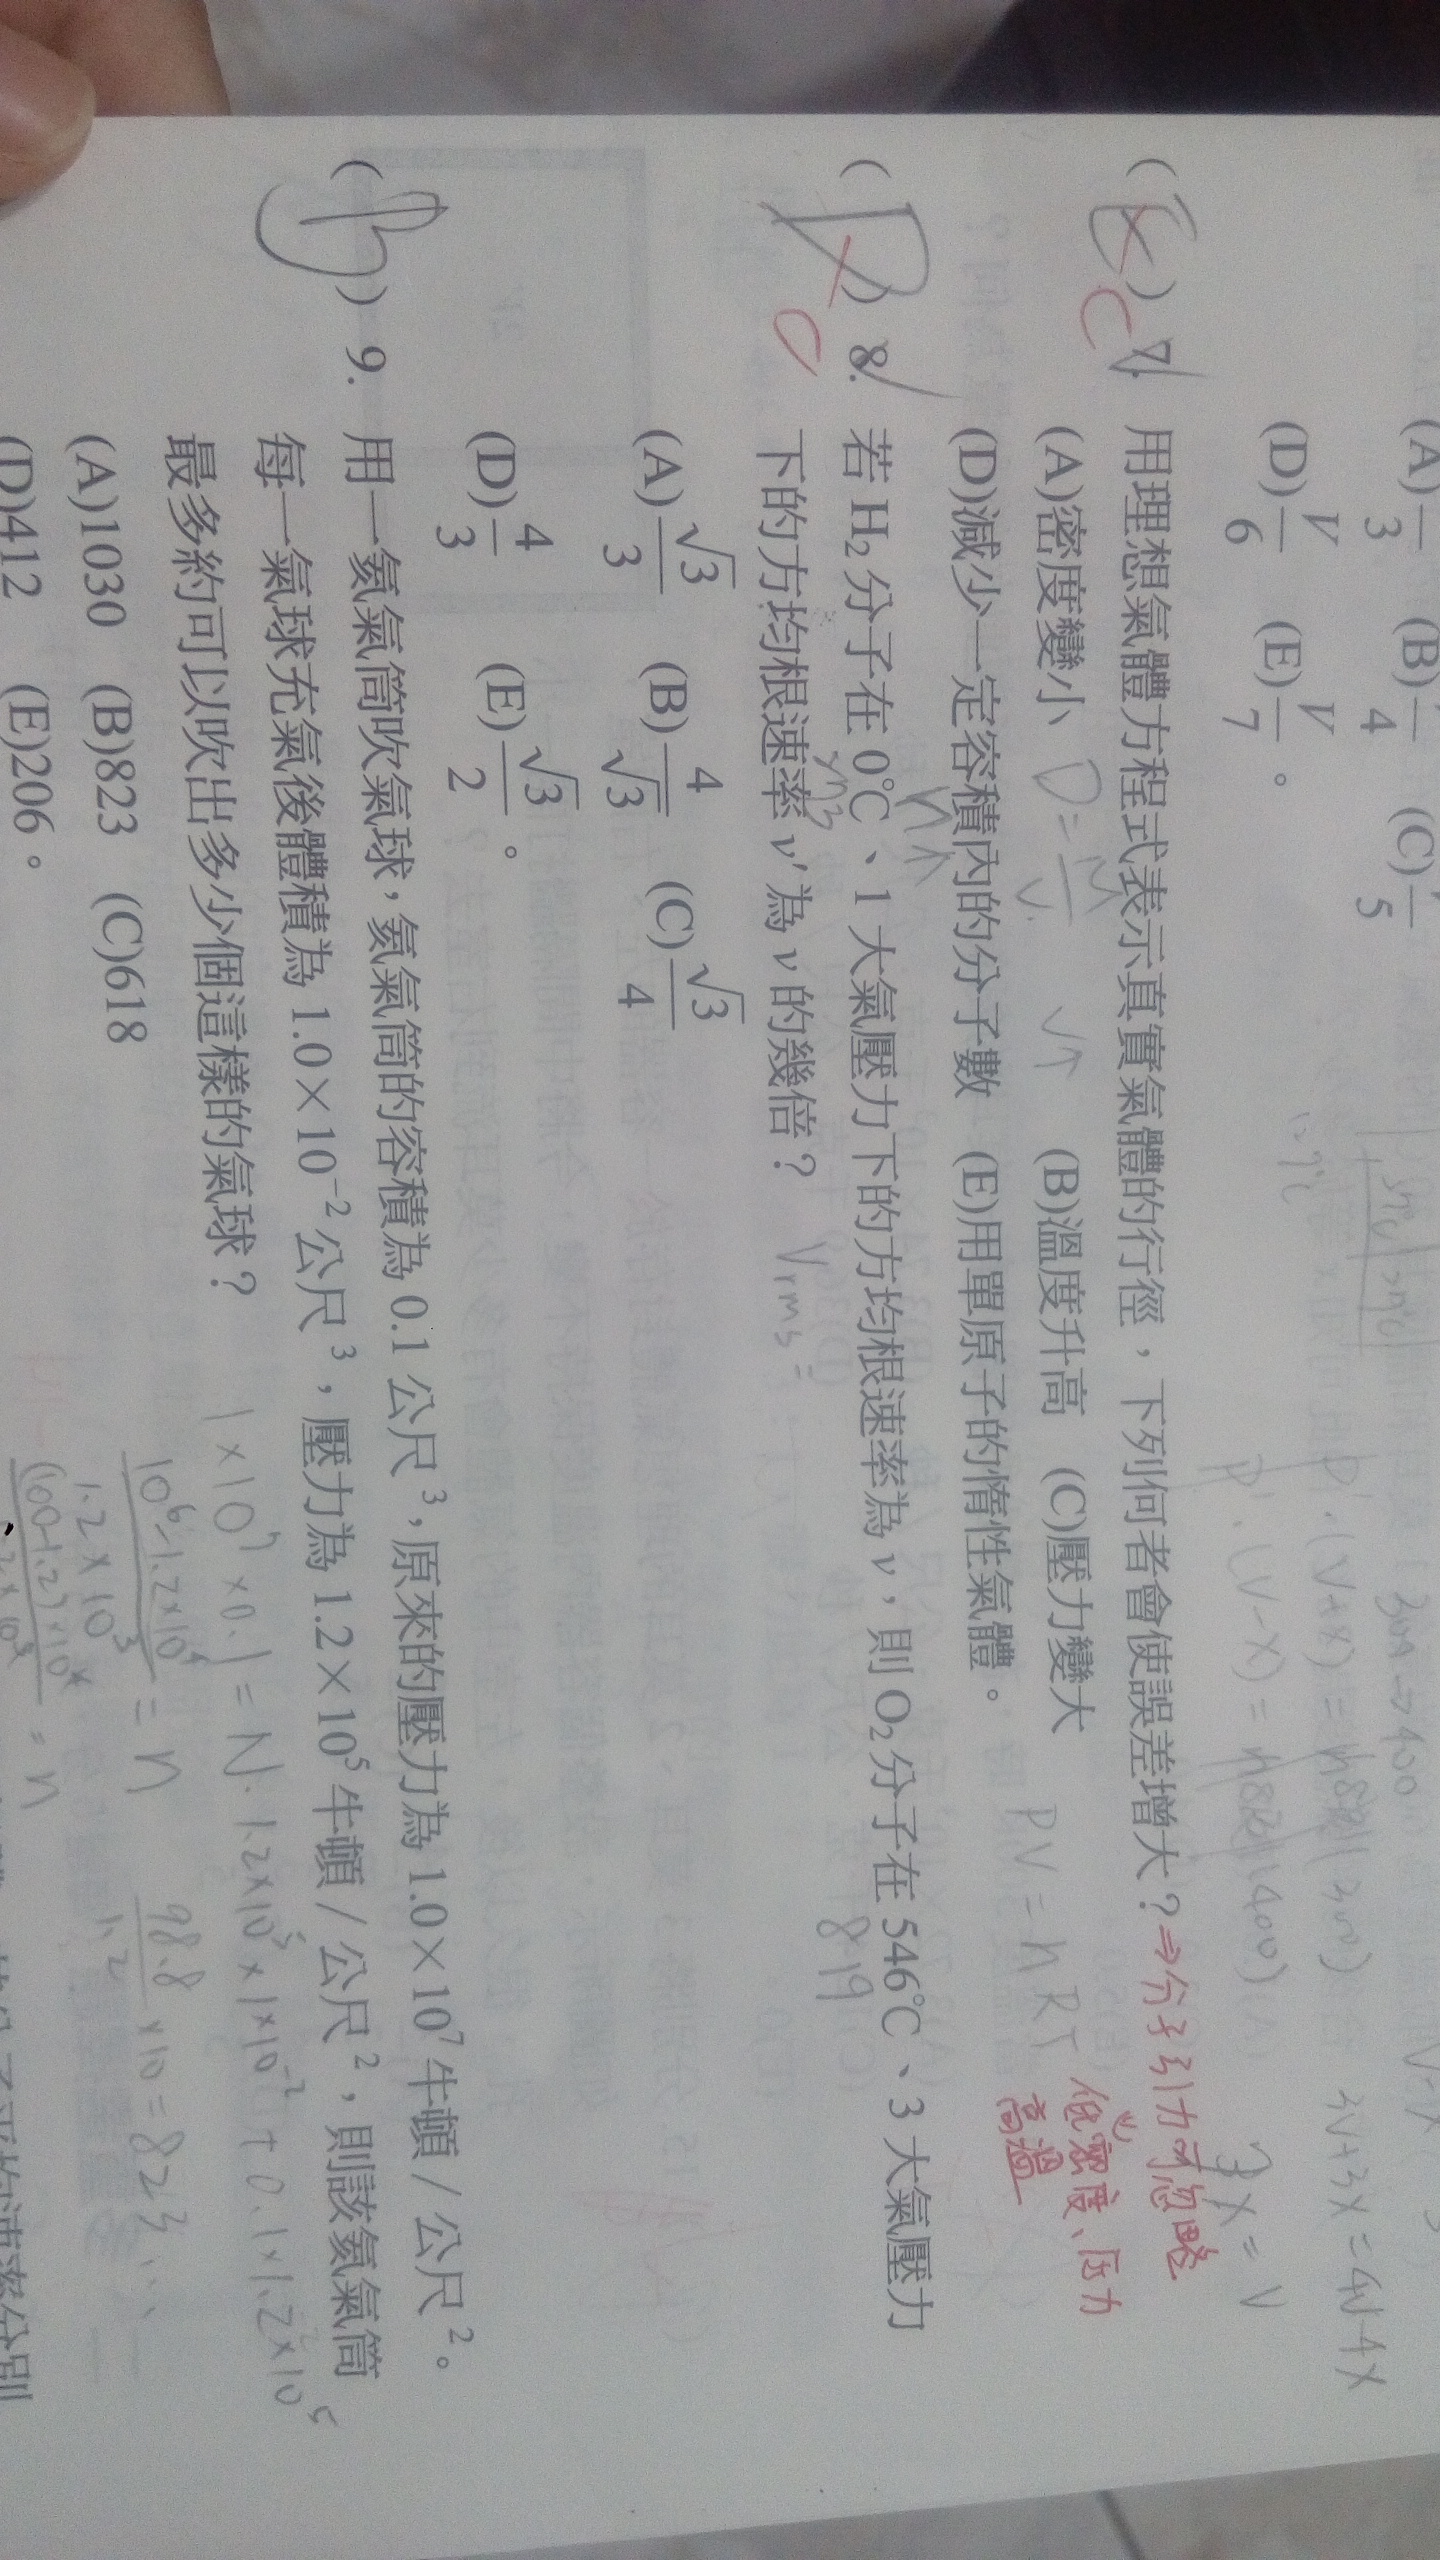 (A)—3 (B)—4 (C)—5
(D)V/6 (E)V/7。
(E) C 7. 用理想氣體方程式表示真實氣體的行徑，下列何者會使誤差增大？⇒分子引力可忽略
(A)密度變小 D=M/V V↑ (B)溫度升高 (C)壓力變大 PV=nRT 低密度、压力
高溫
(D)減少一定容積內的分子數 (E)用單原子的惰性氣體。
n↓
(D) C 8. 若 H₂ 分子在 0℃、1 大氣壓力下的方均根速率為 v，則 O₂ 分子在 546℃、3 大氣壓力
819
下的方均根速率 v′ 為 v 的幾倍？ Vrms=
(A)√3/3 (B)4/√3 (C)√3/4
(D)4/3 (E)√3/2。
(B) 9. 用一氦氣筒吹氣球，氦氣筒的容積為 0.1 公尺³，原來的壓力為 1.0×10⁷ 牛頓／公尺²。
每一氣球充氣後體積為 1.0×10⁻² 公尺³，壓力為 1.2×10⁵ 牛頓／公尺²，則該氦氣筒
最多約可以吹出多少個這樣的氣球？
1×10⁷×0.1=N·1.2×10⁵×1×10⁻²+0.1×1.2×10⁵
(A)1030 (B)823 (C)618
(D)412 (E)206。
10⁶-1.2×10⁴/1.2×10³=n
98.8/1.2×10=823...
(100-1.2)×10⁴/1.2×10³=n
3V+3X=4V-4X
7X=V